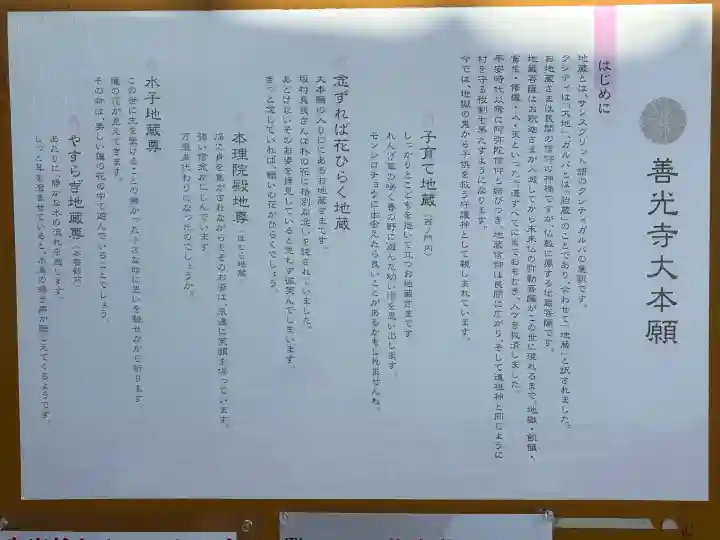 善光寺大本願
はじめに
地蔵とは、サンスクリット語のクシティガルバの意訳です。
クシティは「大地」、ガルバとは「胎蔵」のことであり、合わせて「地蔵」と訳されました。
お地蔵さまは民間の信仰の神様ですが、仏教に属する地蔵菩薩です。
地蔵菩薩はお釈迦さまが入滅してから未来仏の弥勒菩薩がこの世に現れるまで、地獄・餓鬼・
畜生・修羅・人・天といった六道すべてに出ておもむき、人々を救済しました。
平安時代以降に阿弥陀信仰と結びつき、地蔵信仰は民間に広がり、そして道祖神と同じように
村を守る役割も果たすようになります。
今では、地獄の鬼から子供を救う守護神として親しまれています。
子育て地蔵（西ノ門内）
しっかりとこどもを抱いて立つお地蔵さまです
れんげ草の咲く春の野に遊んだ幼い頃を思い出します。
モンシロチョウに出会えたら良いことがあるかもしれませんね。
念ずれば花ひらく地蔵
大本願の入り口にあるお地蔵さまです。
坂村真民さんは朴の花に特別な念いを託されていました。
あどけないそのお姿を拝見していると思わず微笑んでしまいます。
きっと念じていれば、願いの花がひらくでしょう。
本理院殿地尊（ほむら地蔵
焔に身を焦がされながらもそのお姿は、永遠に笑顔を保っています。
強い信念がにじんでいます。
万霊身代わりになったのでしょうか。
水子地蔵尊
この世に生を享けることの無かった小さな命に思いを馳せながら祈ります。
蓮の花が見えてきます。
その命は、美しい蓮の花の中で遊んでいることでしょう。
やすらぎ地蔵尊（本誓殿前）
あたりに、静かな水の流れを感じます。
じっと耳を澄ませていると、小鳥の囀る声が聴こえてくるようです。